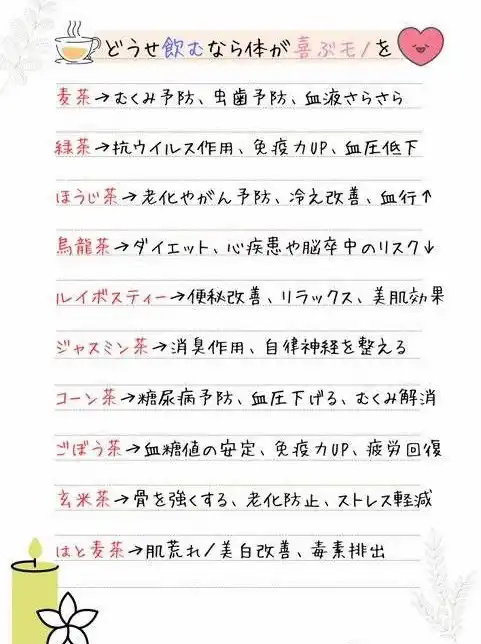 どうせ飲むなら体が喜ぶモノを
麦茶→むくみ予防、虫歯予防、血液さらさら
緑茶→抗ウイルス作用、免疫力UP、血圧低下
ほうじ茶→老化やがん予防、冷え改善、血行↑
烏龍茶→ダイエット、心疾患や脳卒中のリスク↓
ルイボスティー→便秘改善、リラックス、美肌効果
ジャスミン茶→消臭作用、自律神経を整える
コーン茶→糖尿病予防、血圧下げる、むくみ解消
ごぼう茶→血糖値の安定、免疫力UP、疲労回復
玄米茶→骨を強くする、老化防止、ストレス軽減
はと麦茶→肌荒れ/美白改善、毒素排出